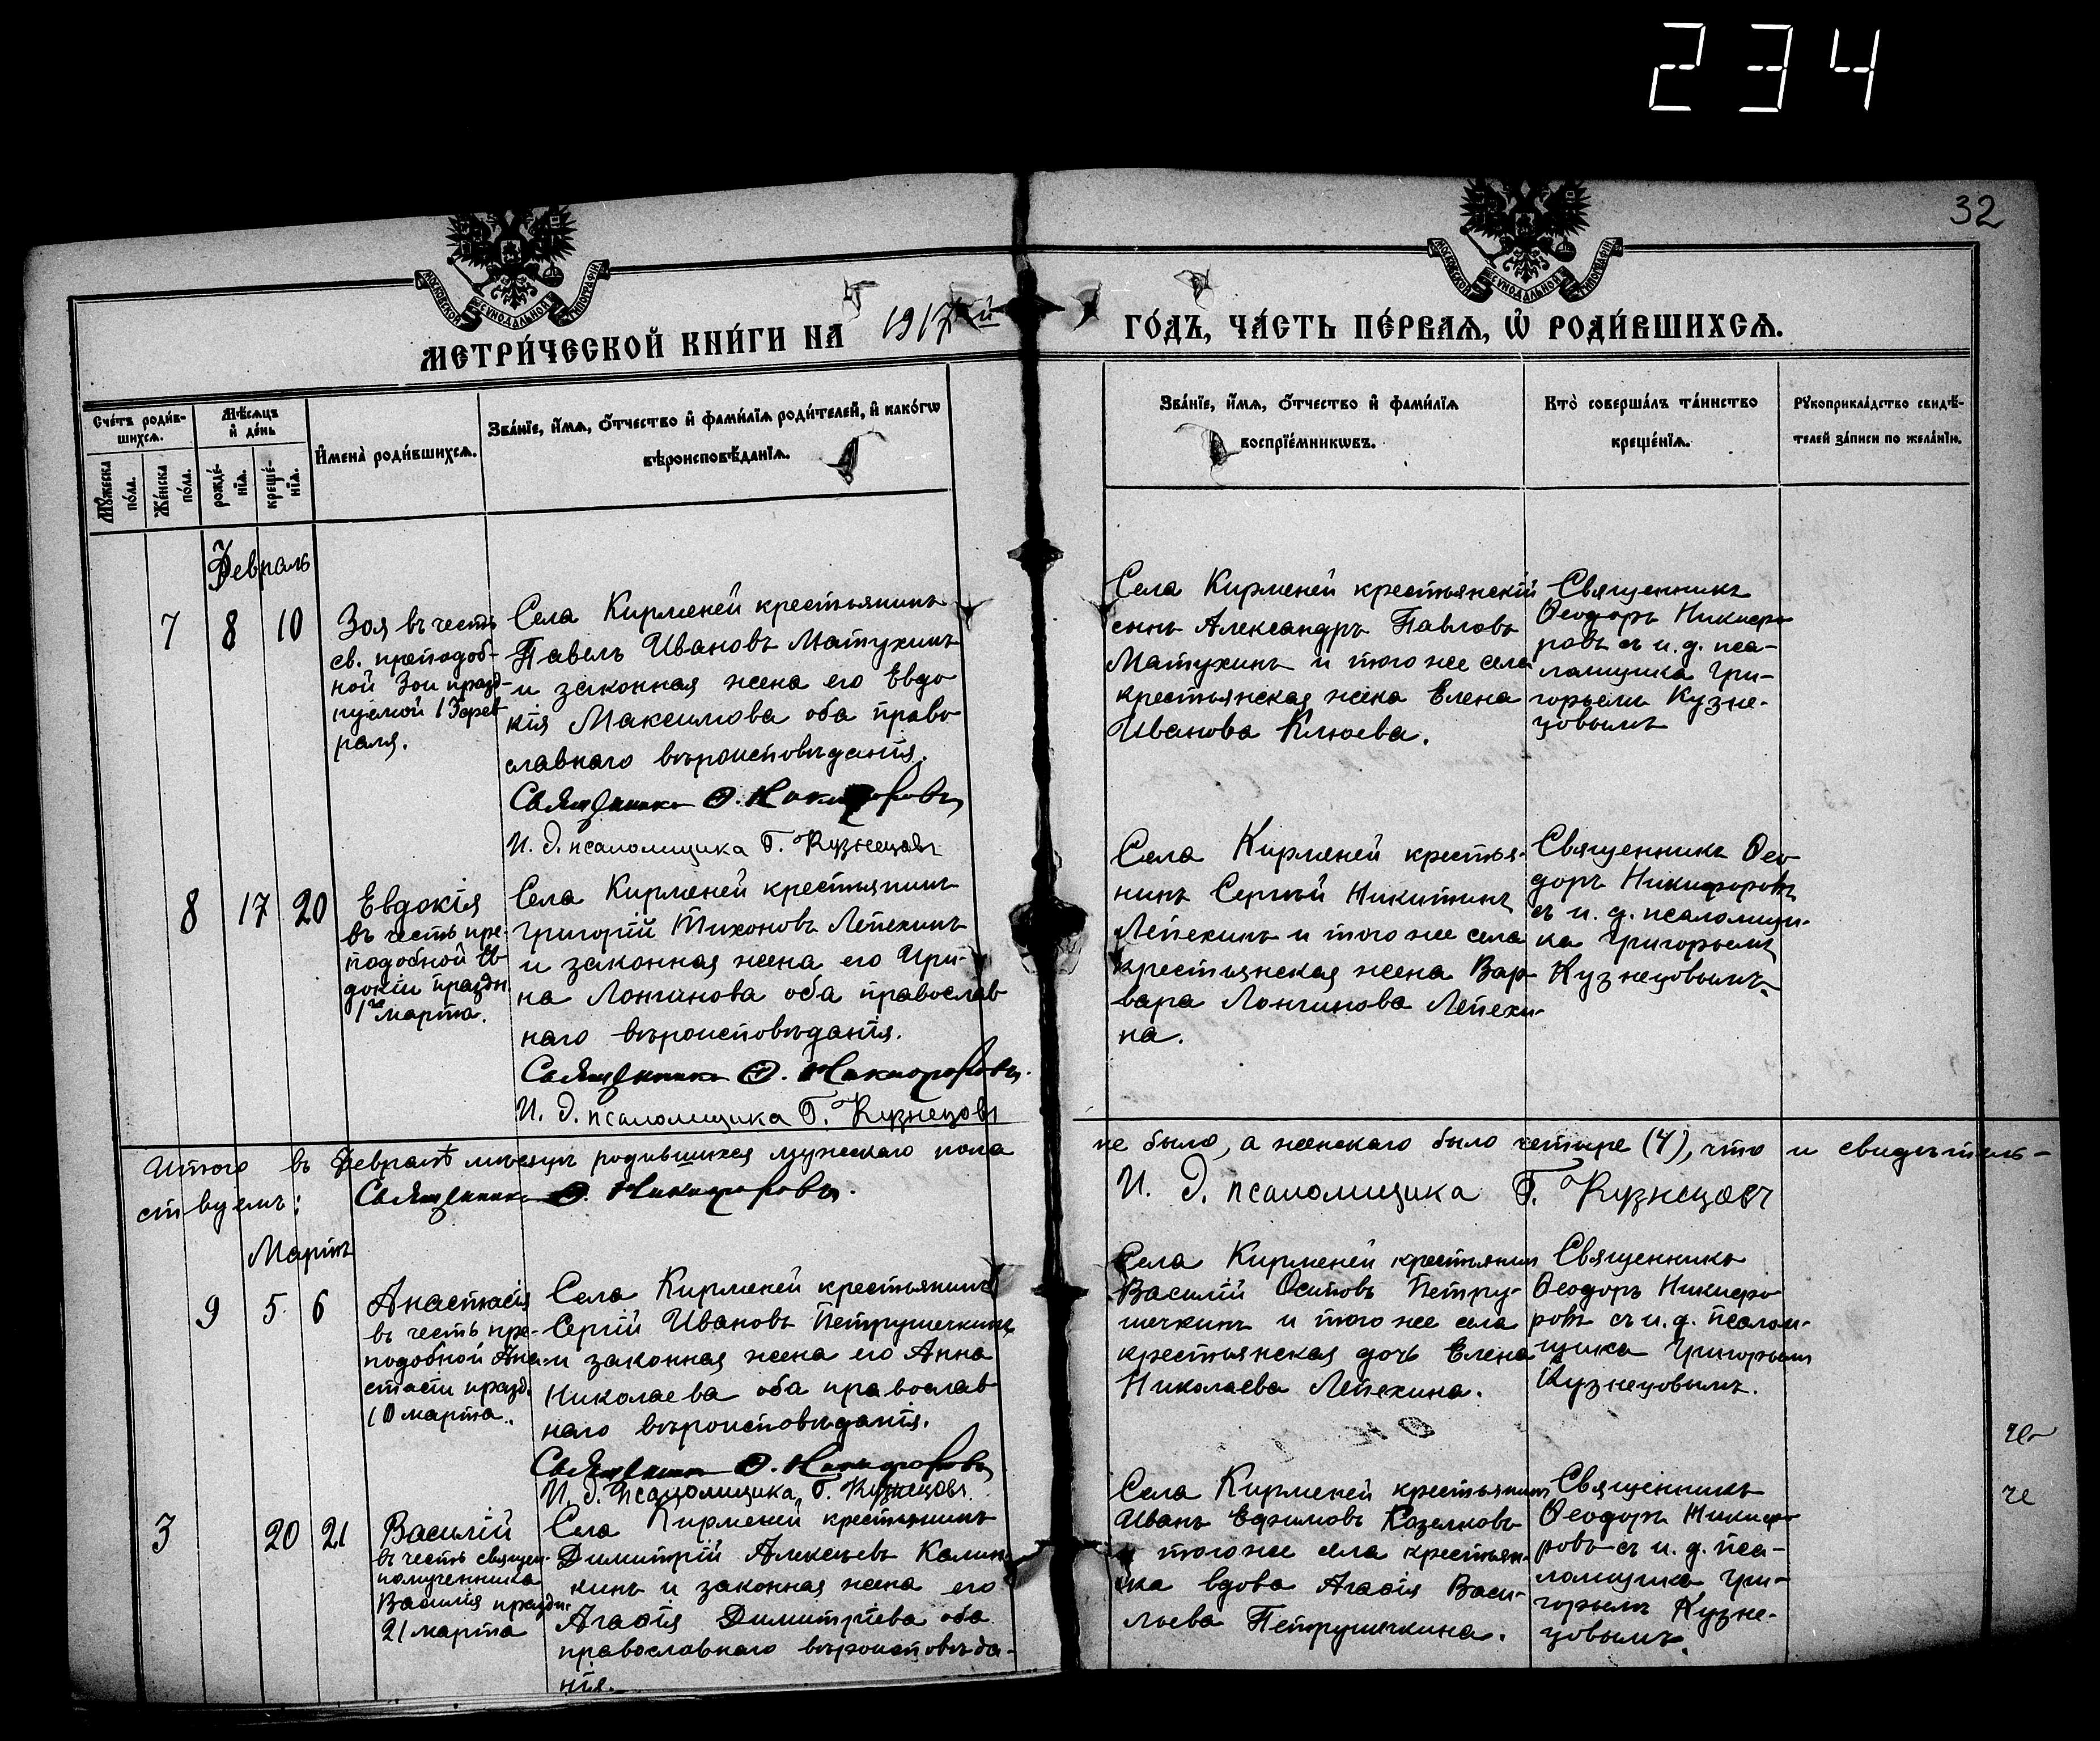 234
32
МОСКОВСКОЙ СѴНОДАЛЬНОЙ ТИПОГРАФІИ
МОСКОВСКОЙ СѴНОДАЛЬНОЙ ТИПОГРАФІИ
МЕТРИ́ЧЕСКОЙ КНИ́ГИ НА 1917й ГО́ДЪ, ЧА́СТЬ ПЕ́РВАѦ, Ѽ РОДИ́ВШИХСѦ.
Сче́тъ роди́в-
шихсѧ.
Мѣ́сѧцъ
и҆ де́нь
Мꙋ́жеска
по́ла.
Же́нска
по́ла.
рожде́-
нїѧ.
креще́-
нїѧ.
И҆мена̀ роди́вшихсѧ.
Зва́нїе, и҆́мѧ, ѻ҆́тчество и҆ фами́лїѧ роди́телей, и҆ како́гѡ
вѣроисповѣ́данїѧ.
Зва́нїе, и҆́мѧ, ѻ҆́тчество и҆ фами́лїѧ
воспрїе́мникѡвъ.
Кто̀ соверша́лъ та́инство
креще́нїѧ.
Рꙋкоприкла́дство свидѣ́-
телей за́писи по жела́нїю.
Февраль
7 8 10
Зоя въ честь
св. преподоб-
ной Зои празд-
нуемой 13 фев
раля.
Села Кирменей крестьянинъ
Павелъ Ивановъ Матухинъ
и законная жена его Евдо
кія Максимова оба право
славнаго вѣроисповѣданія.
Священникъ Ѳ. Никифоровъ
И. д. псаломщика Г. Кузнецовъ
Села Кирменей крестьянскій
сынъ Александръ Павловъ
Матухинъ и того же села
крестьянская жена Елена
Иванова Клюева.
Священникъ
Ѳеодоръ Никифо
ровъ съ и. д. пса-
ломщика Гри-
горьемъ Кузне-
цовымъ
8 17 20
Евдокія
въ честь пре-
подобной Ев
докіи праздн
1го марта.
Села Кирменей крестьянинъ
Григорій Тихоновъ Лепехинъ
и законная жена его Ири-
на Лонгинова оба православ
наго вѣроисповѣданія.
Священникъ Ѳ. Никифоровъ.
И. д. псаломщика Г. Кузнецовъ
Села Кирменей крестья-
нинъ Сергѣй Никитинъ
Лепехинъ и того же села
крестьянская жена Вар-
вара Лонгинова Лепехи-
на.
Священникъ Ѳео
доръ Никифоровъ
съ и. д. псаломщи-
ка Григорьемъ
Кузнецовымъ
Итого въ Февралѣ мѣсяцѣ родившихся мужескаго пола не было, а женскаго было четыре (4), что и свидѣтель-
ствуемъ: Священникъ Ѳ. Никифоровъ. И. д. псаломщика Г. Кузнецовъ
Мартъ
9 5 6
Анастасія
въ честь пре-
подобной Ана-
стасіи празд.
10 марта.
Села Кирменей крестьянинъ
Сергій Ивановъ Петрушечкинъ
и законная жена его Анна
Николаева оба православ
наго вѣроисповѣданія.
Священникъ Ѳ. Никифоровъ
И. д. псаломщика Г. Кузнецовъ.
Села Кирменей крестьянин
Василій Осиповъ Петру-
шечкинъ и того же села
крестьянская дочь Елена
Николаева Лепехина.
Священникъ
Ѳеодоръ Никифо
ровъ съ и. д. псалом-
щика Григорьемъ
Кузнецовымъ.
3 20 21
Василій
въ честь священ-
номученника
Василія праздн.
21 марта
Села Кирменей крестьянинъ
Димитрій Алексѣевъ Калин-
кинъ и законная жена его
Агаѳія Димитріева оба
православнаго вѣроисповѣда-
нія.
Села Кирменей крестьянинъ
Иванъ Ефимовъ Козелковъ
и того же села крестьян-
ска вдова Агаѳія Васи-
льева Петрушечкина.
Священникъ
Ѳеодоръ Никифо
ровъ съ и. д. пса-
ломщика Гри-
горьемъ Кузне-
цовымъ.